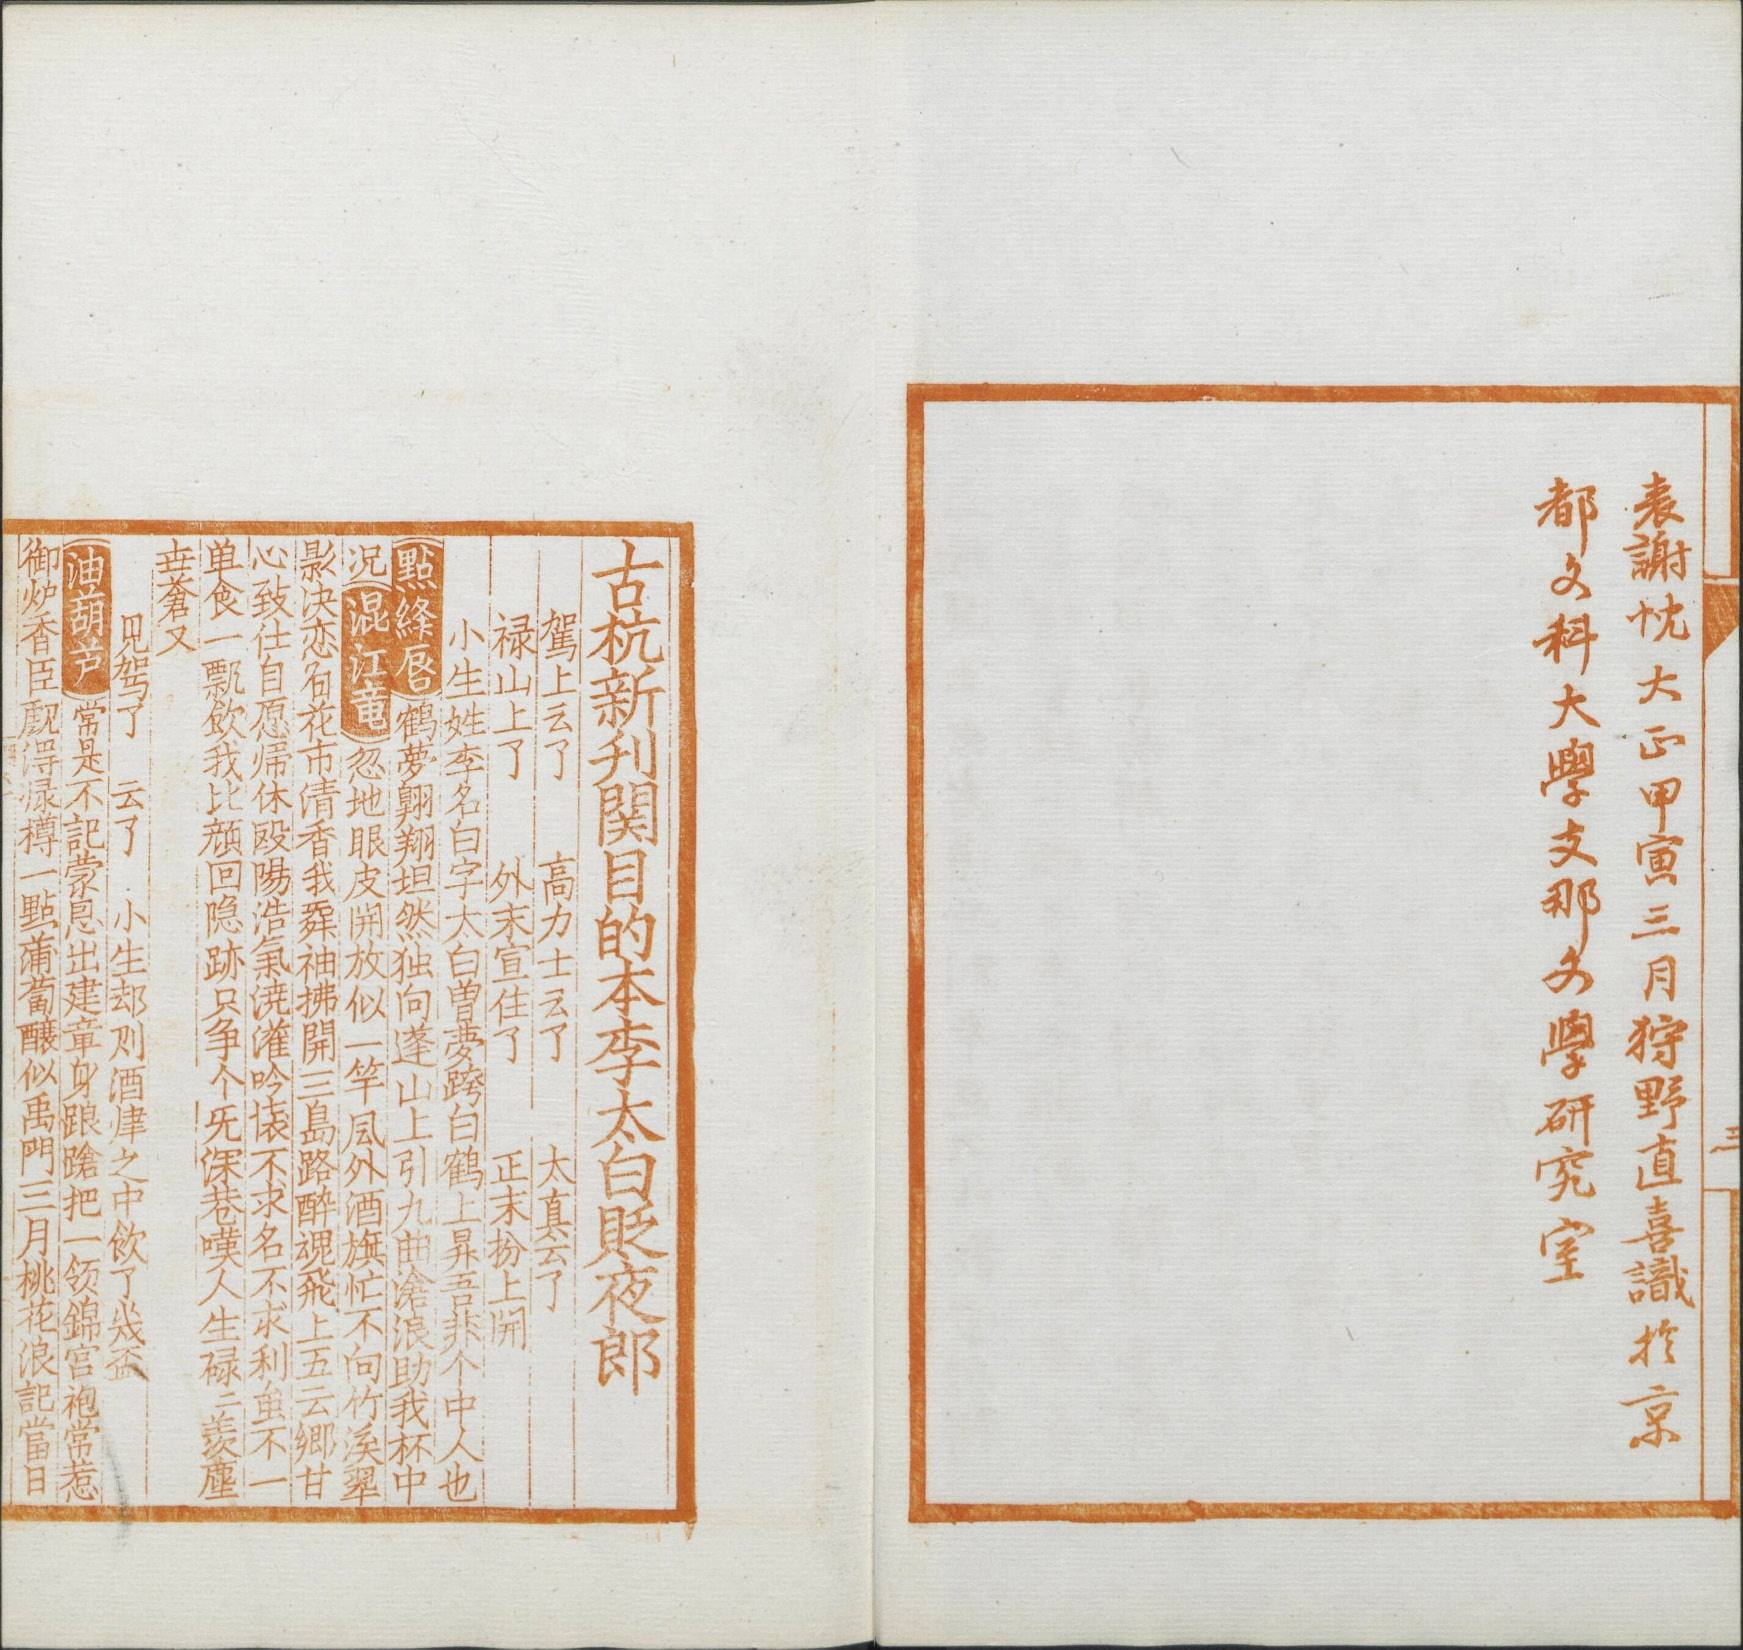 表謝忱大正甲寅三月狩野直喜識於京
都文科大學支那文學研究室
三
古杭新刊関目的本李太白貶夜郎
駕上云了　高力士云了　太真云了
禄山上了　外末宣住了　正末扮上開
小生姓李名白字太白曽夢跨白鶴上昇吾非个中人也
點絳唇　鶴夢翱翔坦然独向蓬山上引九曲滄浪助我杯中
况　混江竜　忽地眼皮開放似一竿風外酒旗忙不向竹溪翠
影决恋名花市清香我舞袖拂開三島路醉魂飛上五云郷甘
心致仕自愿帰休殴陽浩氣澆灌吟懐不求名不求利虽不一
单食一瓢飲我比顔回隐跡只争个旡深巷嘆人生碌〻羡塵
世蒼又
見駕了　云了　小生却则酒肆之中飲了㡬盃
油葫芦　常是不記蒙恩出建章身踉蹌把一领錦宫袍常惹
御炉香臣覷淂渌樽一點蒲萄釀似禹門三月桃花浪記當日